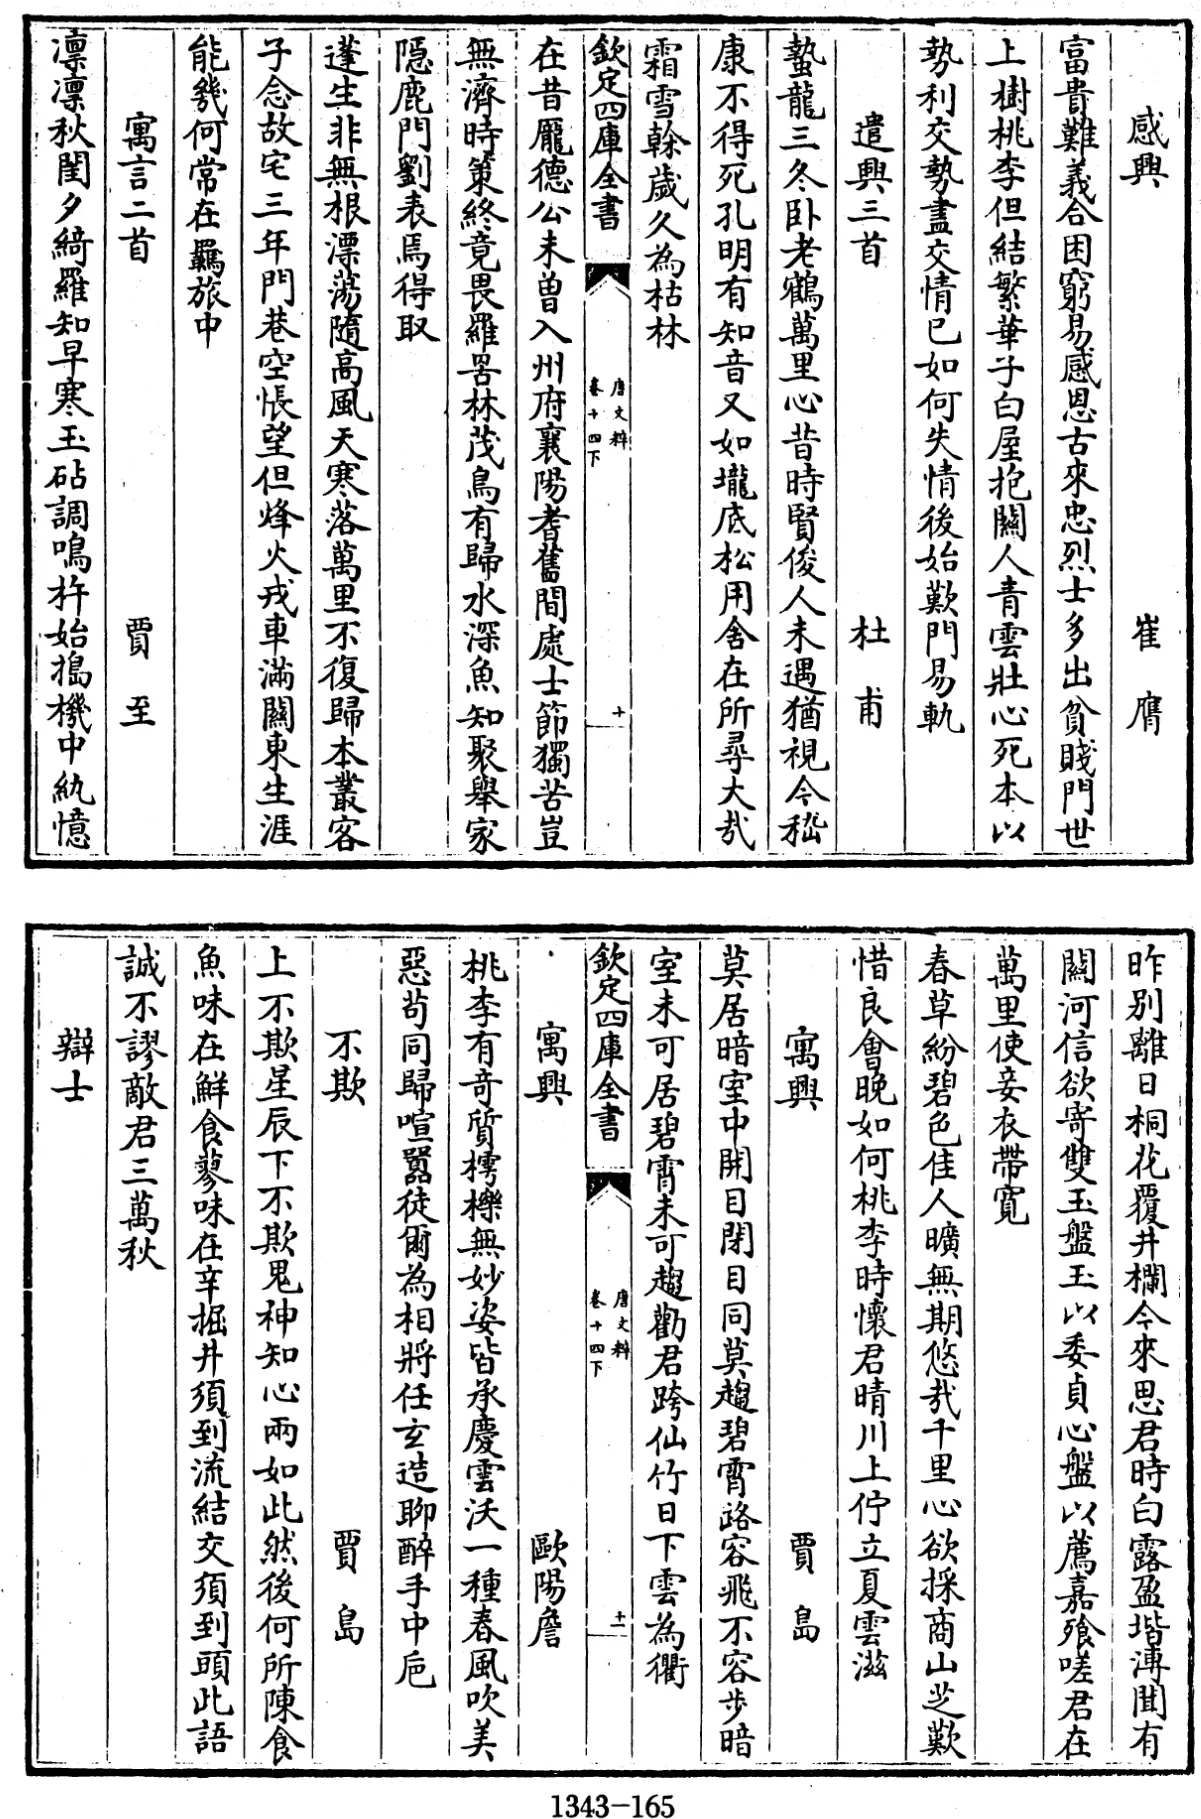 感興　崔膺
富貴難義合困窮易感恩古來忠烈士多出貧賤門世
上樹桃李但結繁華子白屋抱關人青雲壯心死本以
勢利交勢盡交情已如何失情後始歎門易軌
遣興三首　杜甫
蟄龍三冬卧老鶴萬里心昔時賢俊人未遇猶視今嵇
康不得死孔明有知音又如壠底松用舍在所尋大哉
霜雪榦歲久為枯林
欽定四庫全書
唐文粹
卷十四下
十
在昔龎德公未曾入州府襄陽耆舊間處士節獨苦豈
無濟時策終竟畏羅罟林茂鳥有歸水深魚知聚舉家
隱鹿門劉表焉得取
蓬生非無根漂蕩隨高風天寒落萬里不復歸本叢客
子念故宅三年門巷空悵望但烽火戎車滿關東生涯
能幾何常在羈旅中
寓言二首　賈至
凛凛秋閨夕綺羅知早寒玉砧調鳴杵始搗機中紈憶
昨别離日桐花覆井欄今來思君時白露盈堦漙聞有
關河信欲寄雙玉盤玉以委貞心盤以薦嘉飱嗟君在
萬里使妾衣帶寛
春草紛碧色佳人曠無期悠哉千里心欲採商山芝歎
惜良會晚如何桃李時懷君晴川上佇立夏雲滋
寓興　賈島
莫居暗室中開目閉目同莫趨碧霄路容飛不容步暗
室未可居碧霄未可趨勸君跨仙竹日下雲為衢
欽定四庫全書
唐文粹
卷十四下
十一
寓興　歐陽詹
桃李有奇質樗櫟無妙姿皆承慶雲沃一種春風吹美
惡苟同歸喧囂徒爾為相將任玄造聊醉手中巵
不欺　賈島
上不欺星辰下不欺鬼神知心兩如此然後何所陳食
魚味在鮮食蓼味在辛掘井須到流結交須到頭此語
誠不謬敵君三萬秋
辯士
1343-165